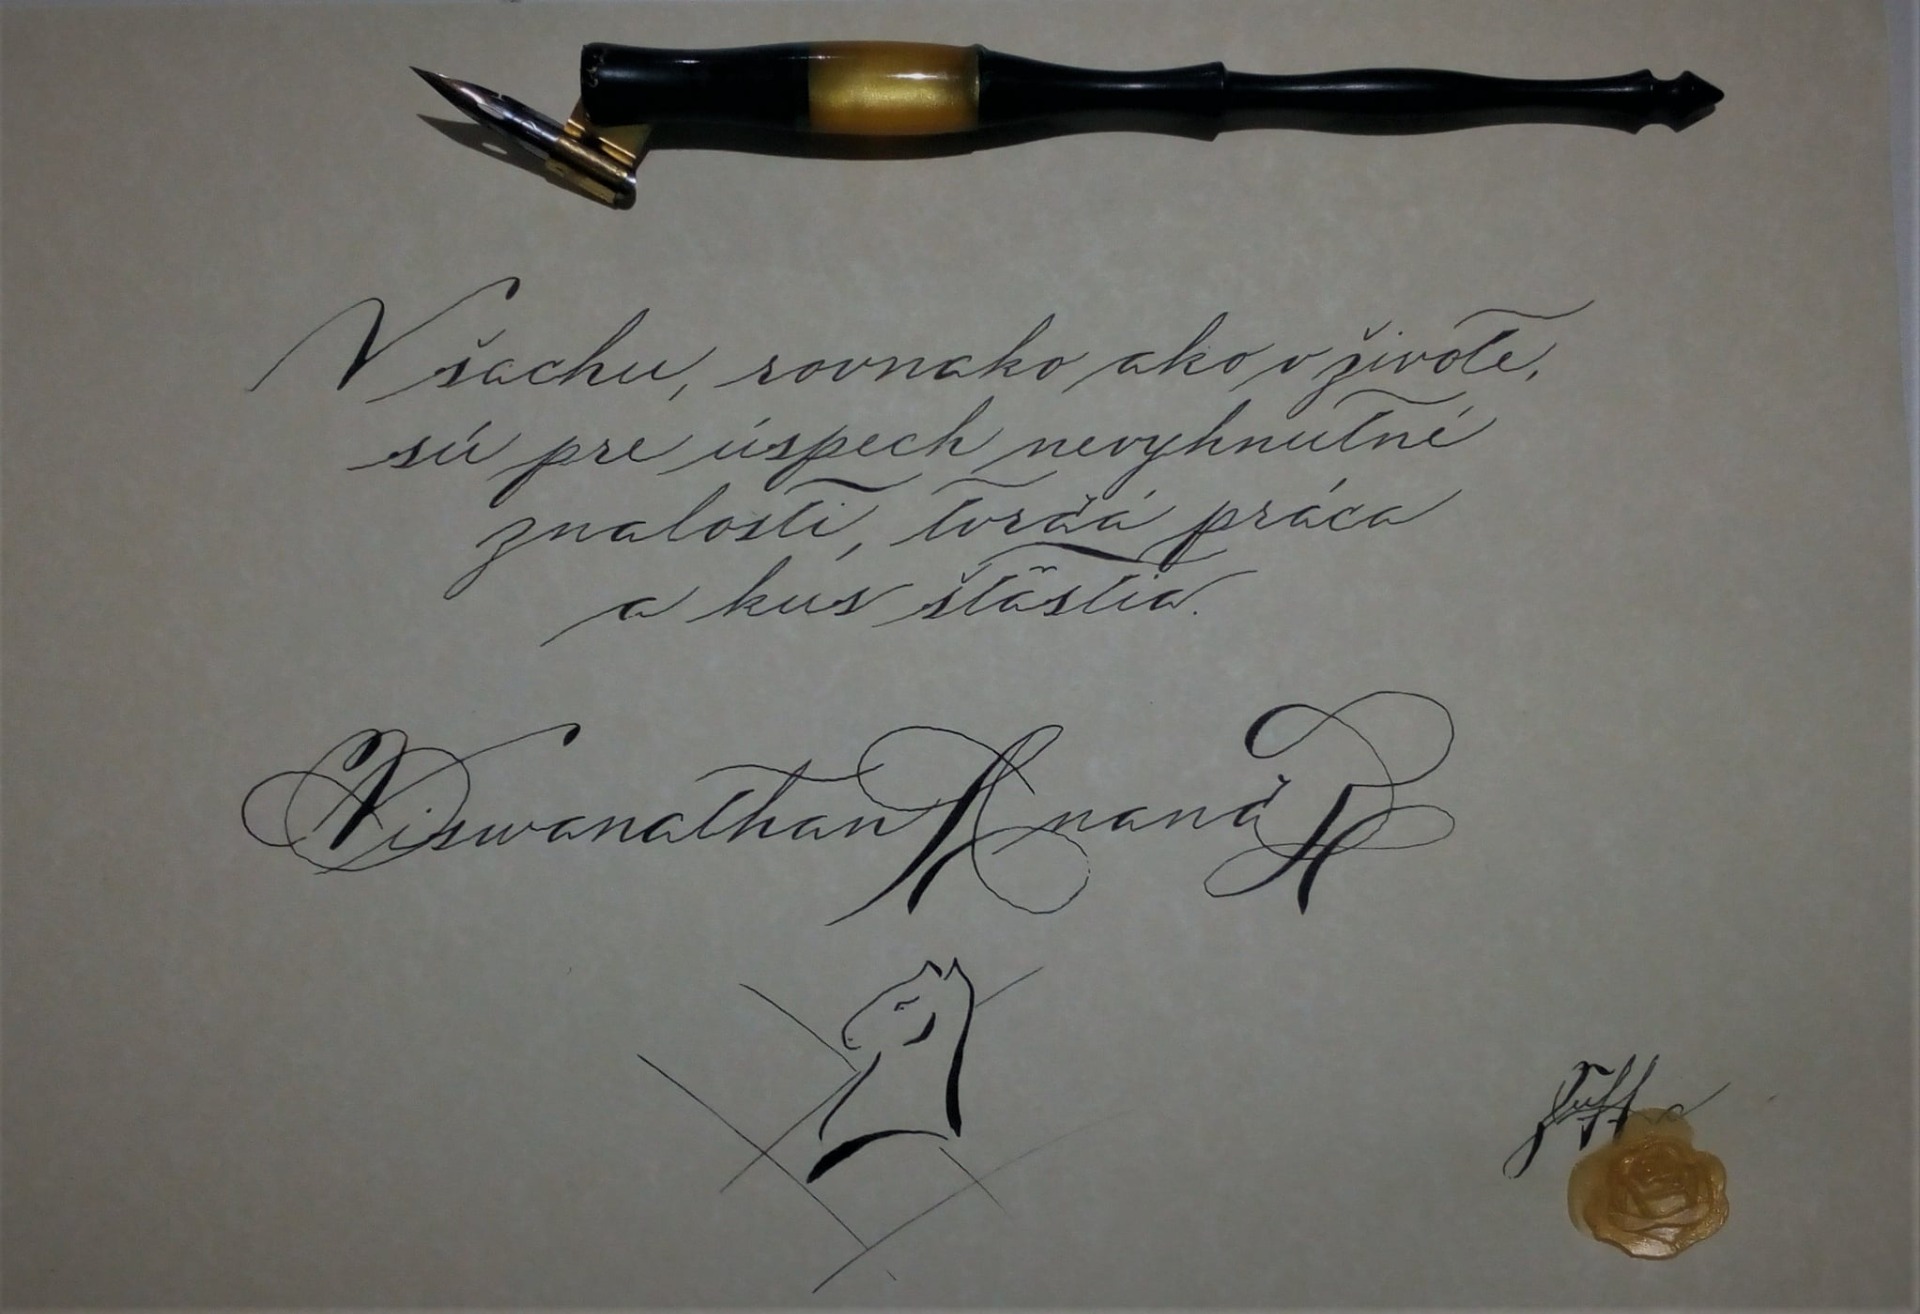 V šachu, rovnako ako v živote,
sú pre úspech nevyhnutné
znalosti, tvrdá práca
a kus šťastia.
Viswanathan Anand